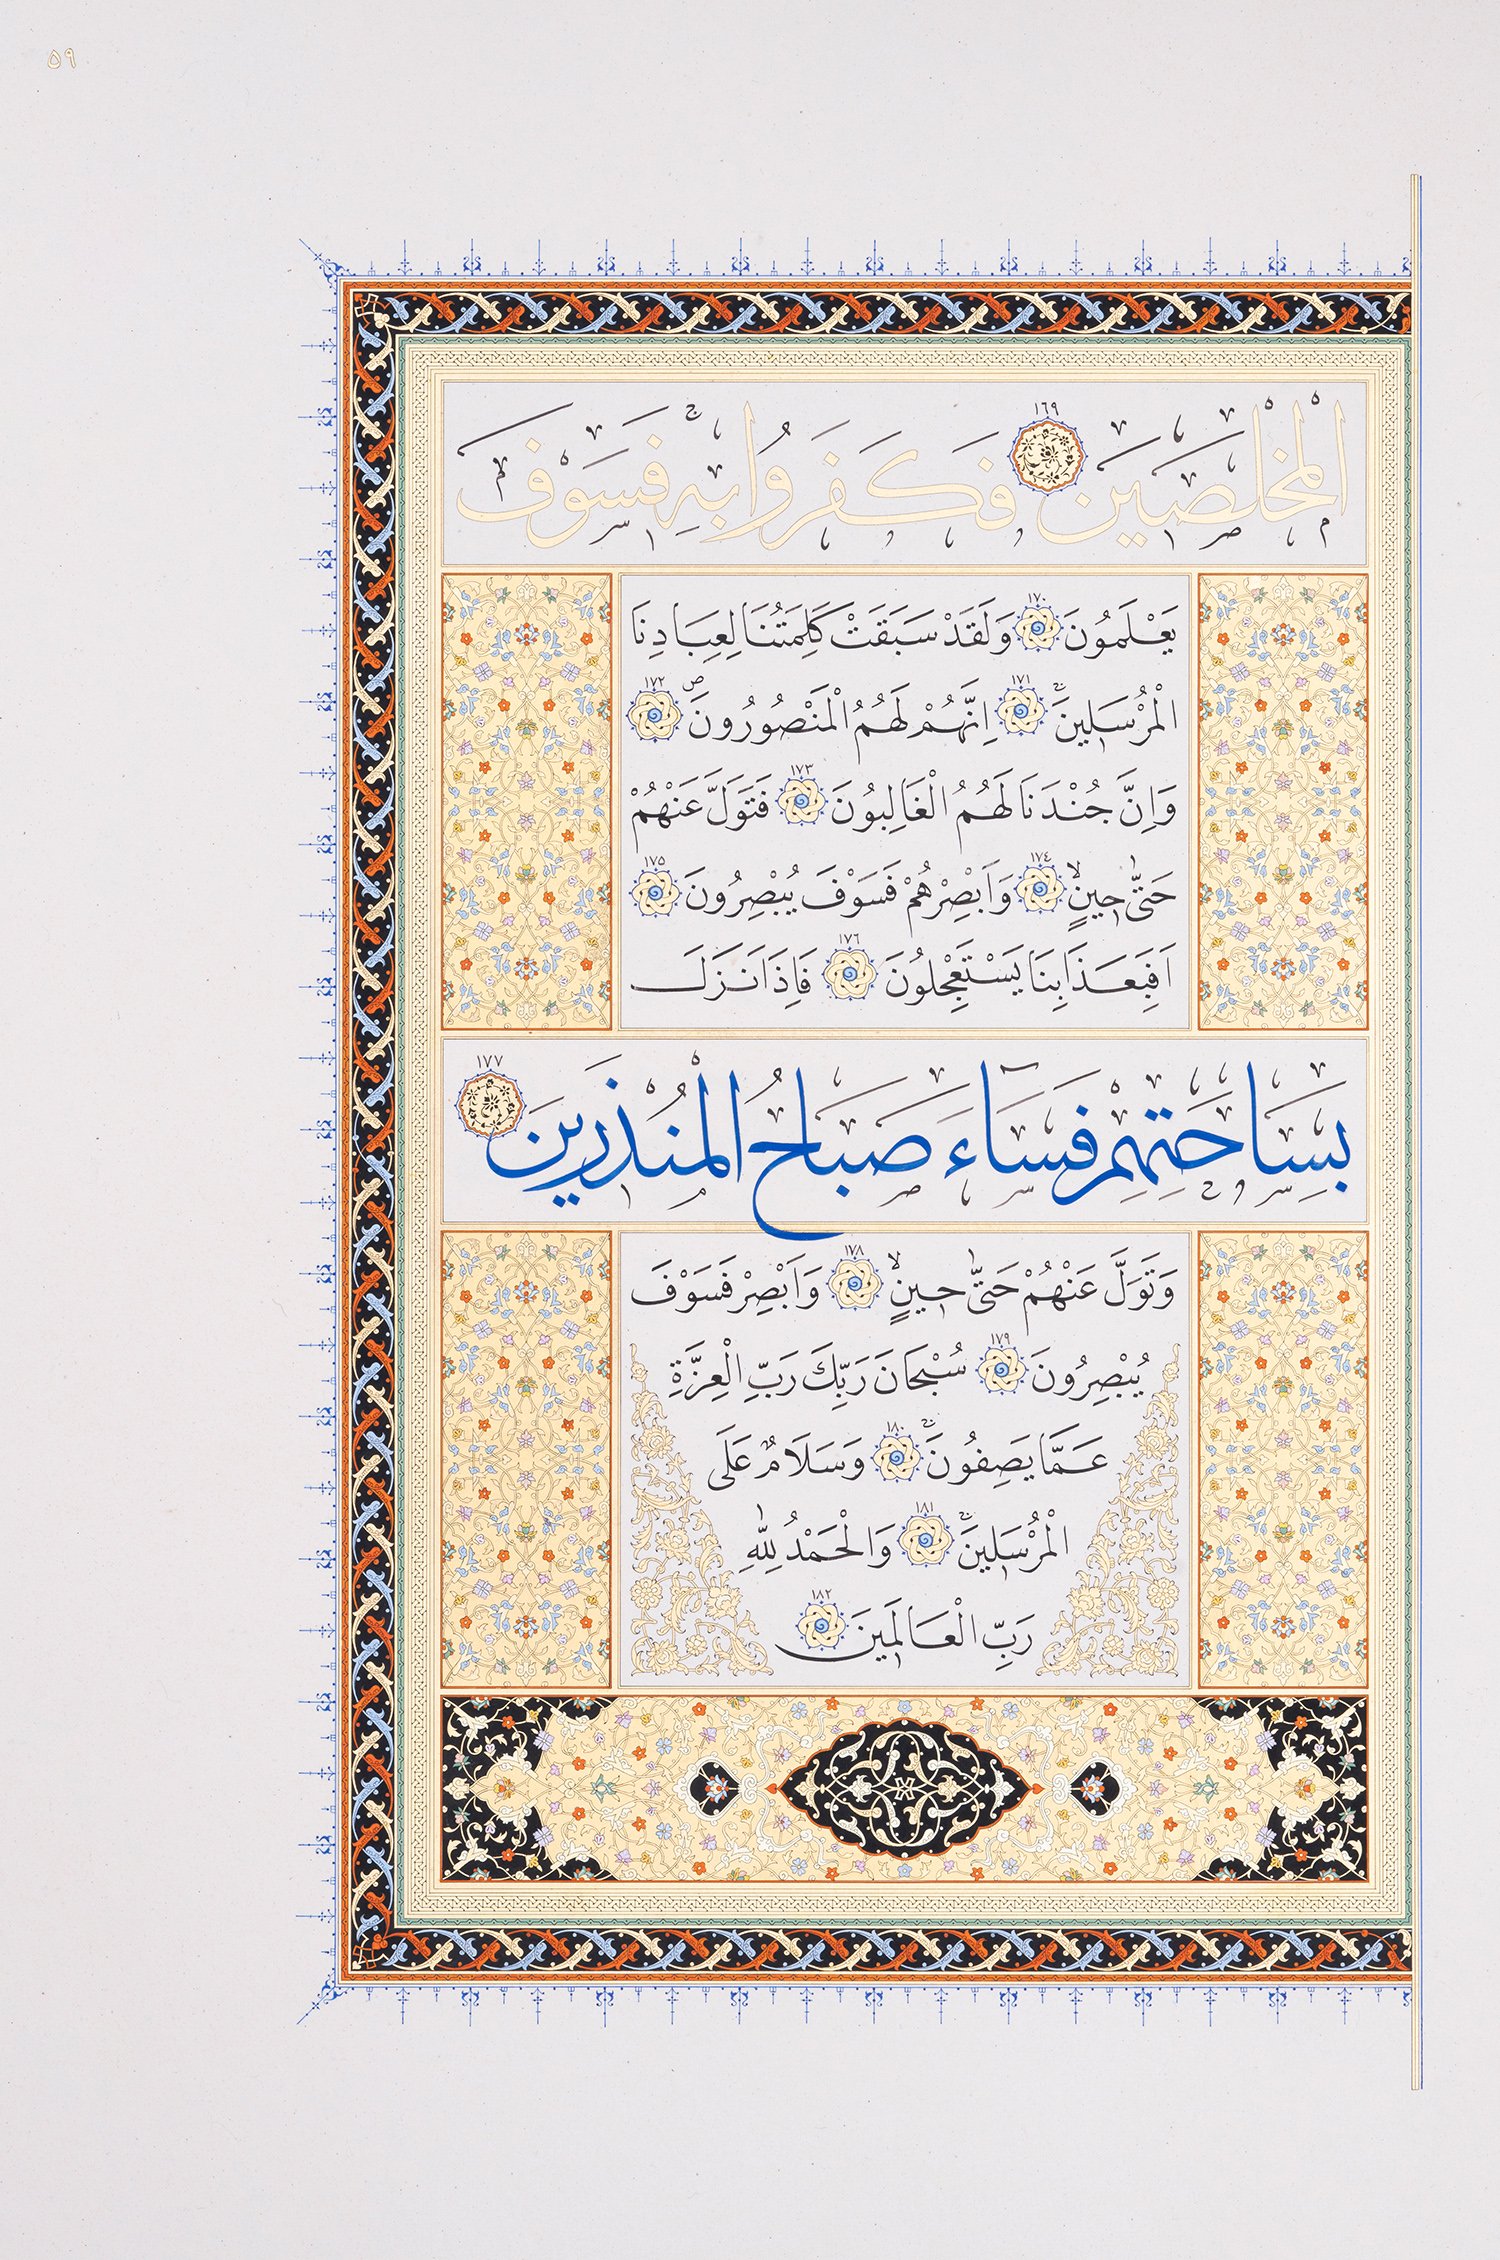 ٥٩
الْمُخْلَصِينَ ١٦٩ فَكَفَرُوا بِهِ ۚ فَسَوْفَ
يَعْلَمُونَ ١٧٠ وَلَقَدْ سَبَقَتْ كَلِمَتُنَا لِعِبَادِنَا
الْمُرْسَلِينَ ١٧١ اِنَّهُمْ لَهُمُ الْمَنْصُورُونَ ۖ ١٧٢
وَاِنَّ جُنْدَنَا لَهُمُ الْغَالِبُونَ ١٧٣ فَتَوَلَّ عَنْهُمْ
حَتّٰى حِينٍ ۙ ١٧٤ وَاَبْصِرْهُمْ فَسَوْفَ يُبْصِرُونَ ١٧٥
اَفَبِعَذَابِنَا يَسْتَعْجِلُونَ ١٧٦ فَاِذَا نَزَلَ
بِسَاحَتِهِمْ فَسَاءَ صَبَاحُ الْمُنْذَرِينَ ١٧٧
وَتَوَلَّ عَنْهُمْ حَتّٰى حِينٍ ۙ ١٧٨ وَاَبْصِرْ فَسَوْفَ
يُبْصِرُونَ ١٧٩ سُبْحَانَ رَبِّكَ رَبِّ الْعِزَّةِ
عَمَّا يَصِفُونَ ١٨٠ وَسَلَامٌ عَلَى
الْمُرْسَلِينَ ١٨١ وَالْحَمْدُ لِلّٰهِ
رَبِّ الْعَالَمِينَ ١٨٢